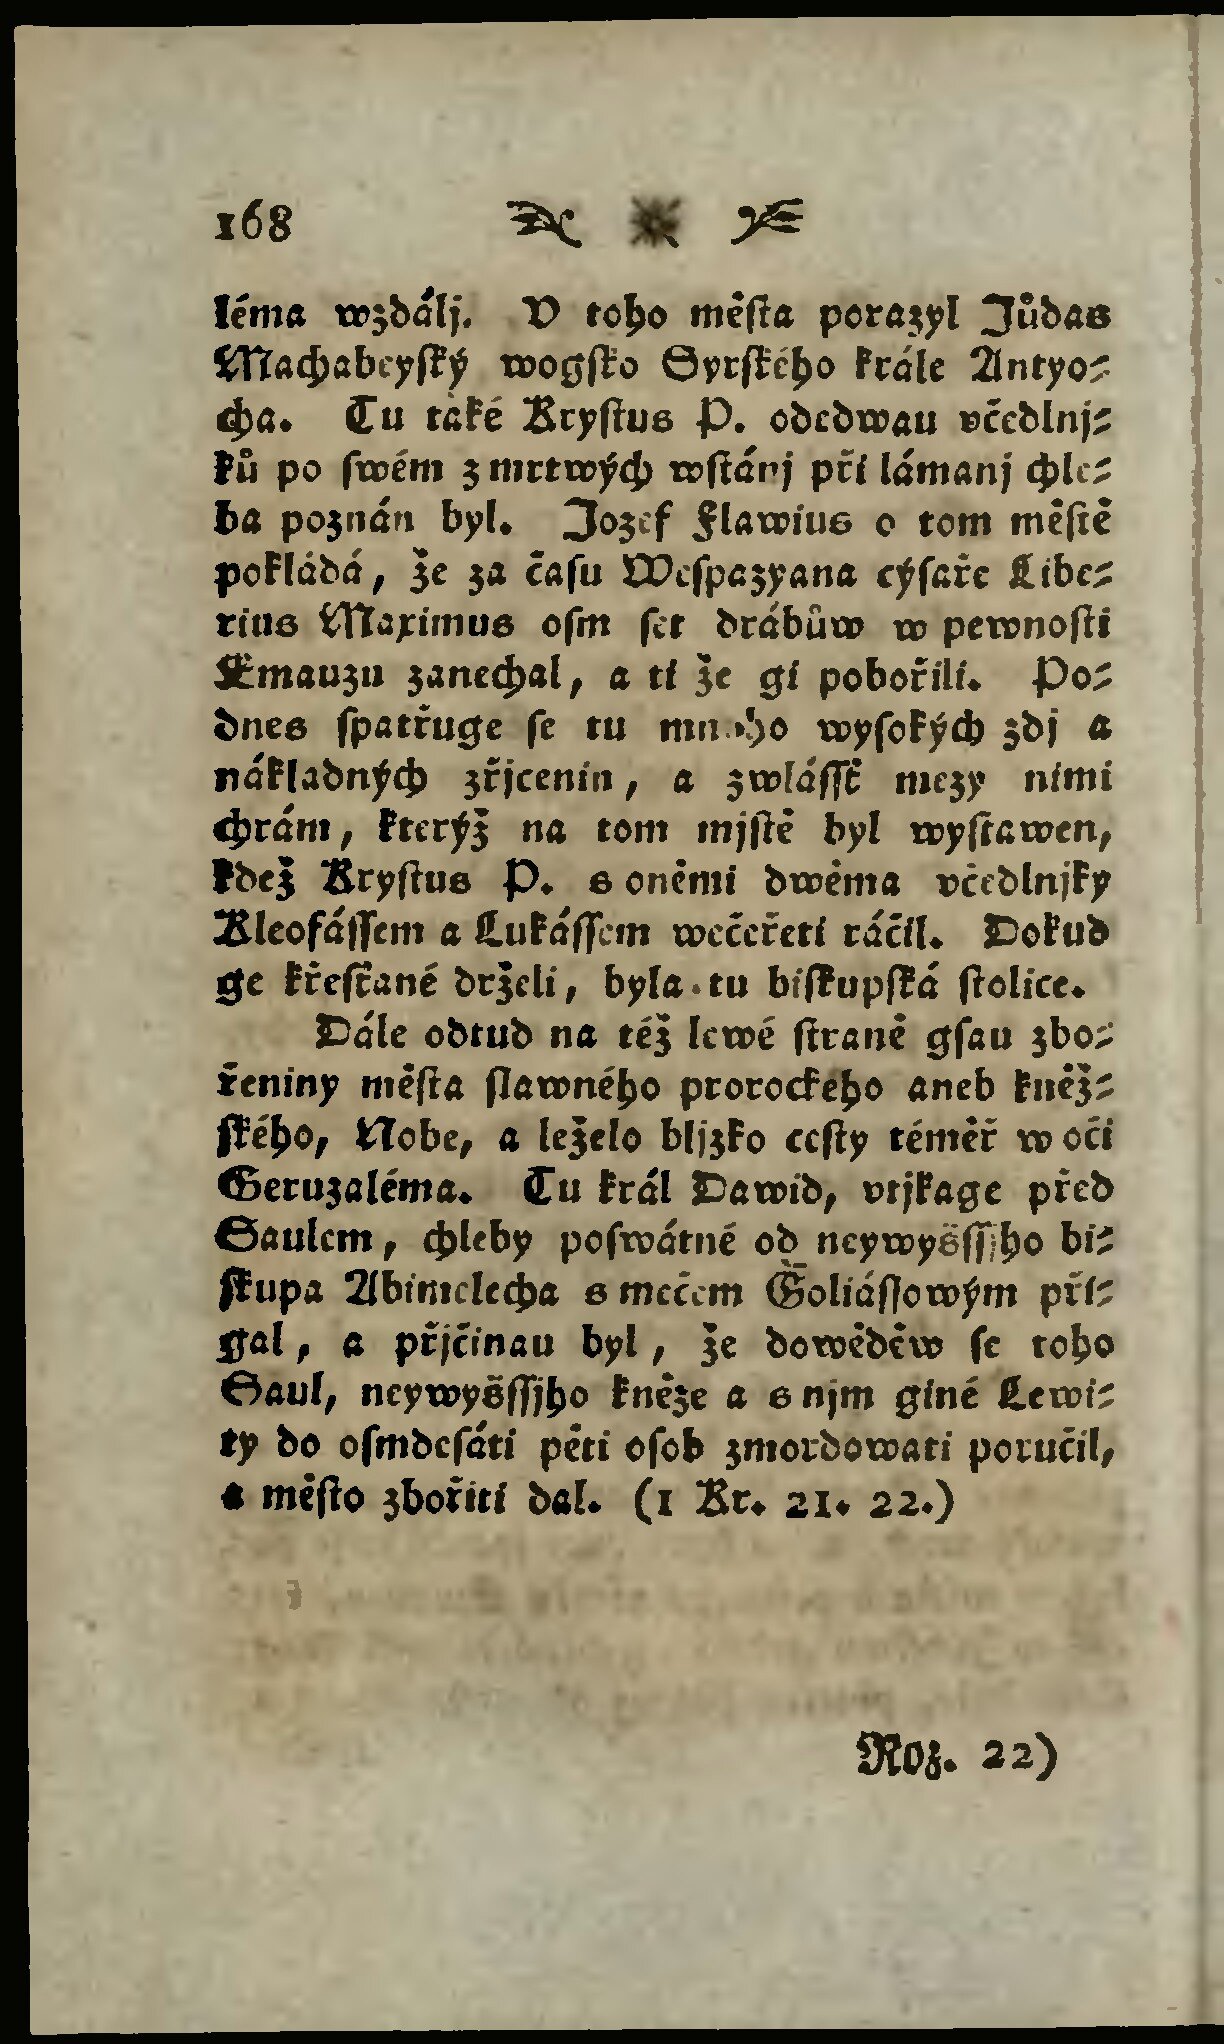 168
léma wzdálj. V toho měſta porazyl Jůdas
Machabeyſký wogſko Syrſkého krále Antyo-
cha. Tu také Kryſtus P. odedwau včedlnj-
ků po ſwém z mrtwých wſtánj při lámanj chle-
ba poznán byl. Jozef Flawius o tom měſtě
pokládá, že za čaſu Weſpazyana cýſaře Libe-
rius Maximus oſm ſet drábůw w pewnoſti
Emauzu zanechal, a ti že gi pobořili. Po-
dnes ſpatřuge ſe tu mnoho wyſokých zdj a
nákladných zřjcenin, a zwláſſt mezy nimi
chrám, kterýž na tom mjſtě byl wyſtawen,
kdež Kryſtus P. s oněmi dwěma včedlnjky
Kleofáſſem a Lukáſſem wečeřeti ráčil. Dokud
ge křeſťané drželi, byla tu biſkupſká ſtolice.
Dále odtud na též lewé ſtraně gſau zbo-
řeniny měſta ſlawného prorockeho aneb kněž-
ſkého, Nobe, a leželo bljzko ceſty téměř w oči
Geruzaléma. Tu král Dawid, vtjkage před
Saulem, chleby poſwátné od neywyšſſjho bi-
ſkupa Abimelecha s mečem Goliáſſowým při-
gal, a přjčinau byl, že dowěděw ſe toho
Saul, neywyšſſjho kněze a s njm giné Lewi-
ty do oſmdeſáti pěti oſob zmordowati poručil,
a měſto zbořiti dal. (1 Kr. 21. 22.)
Roz. 22)